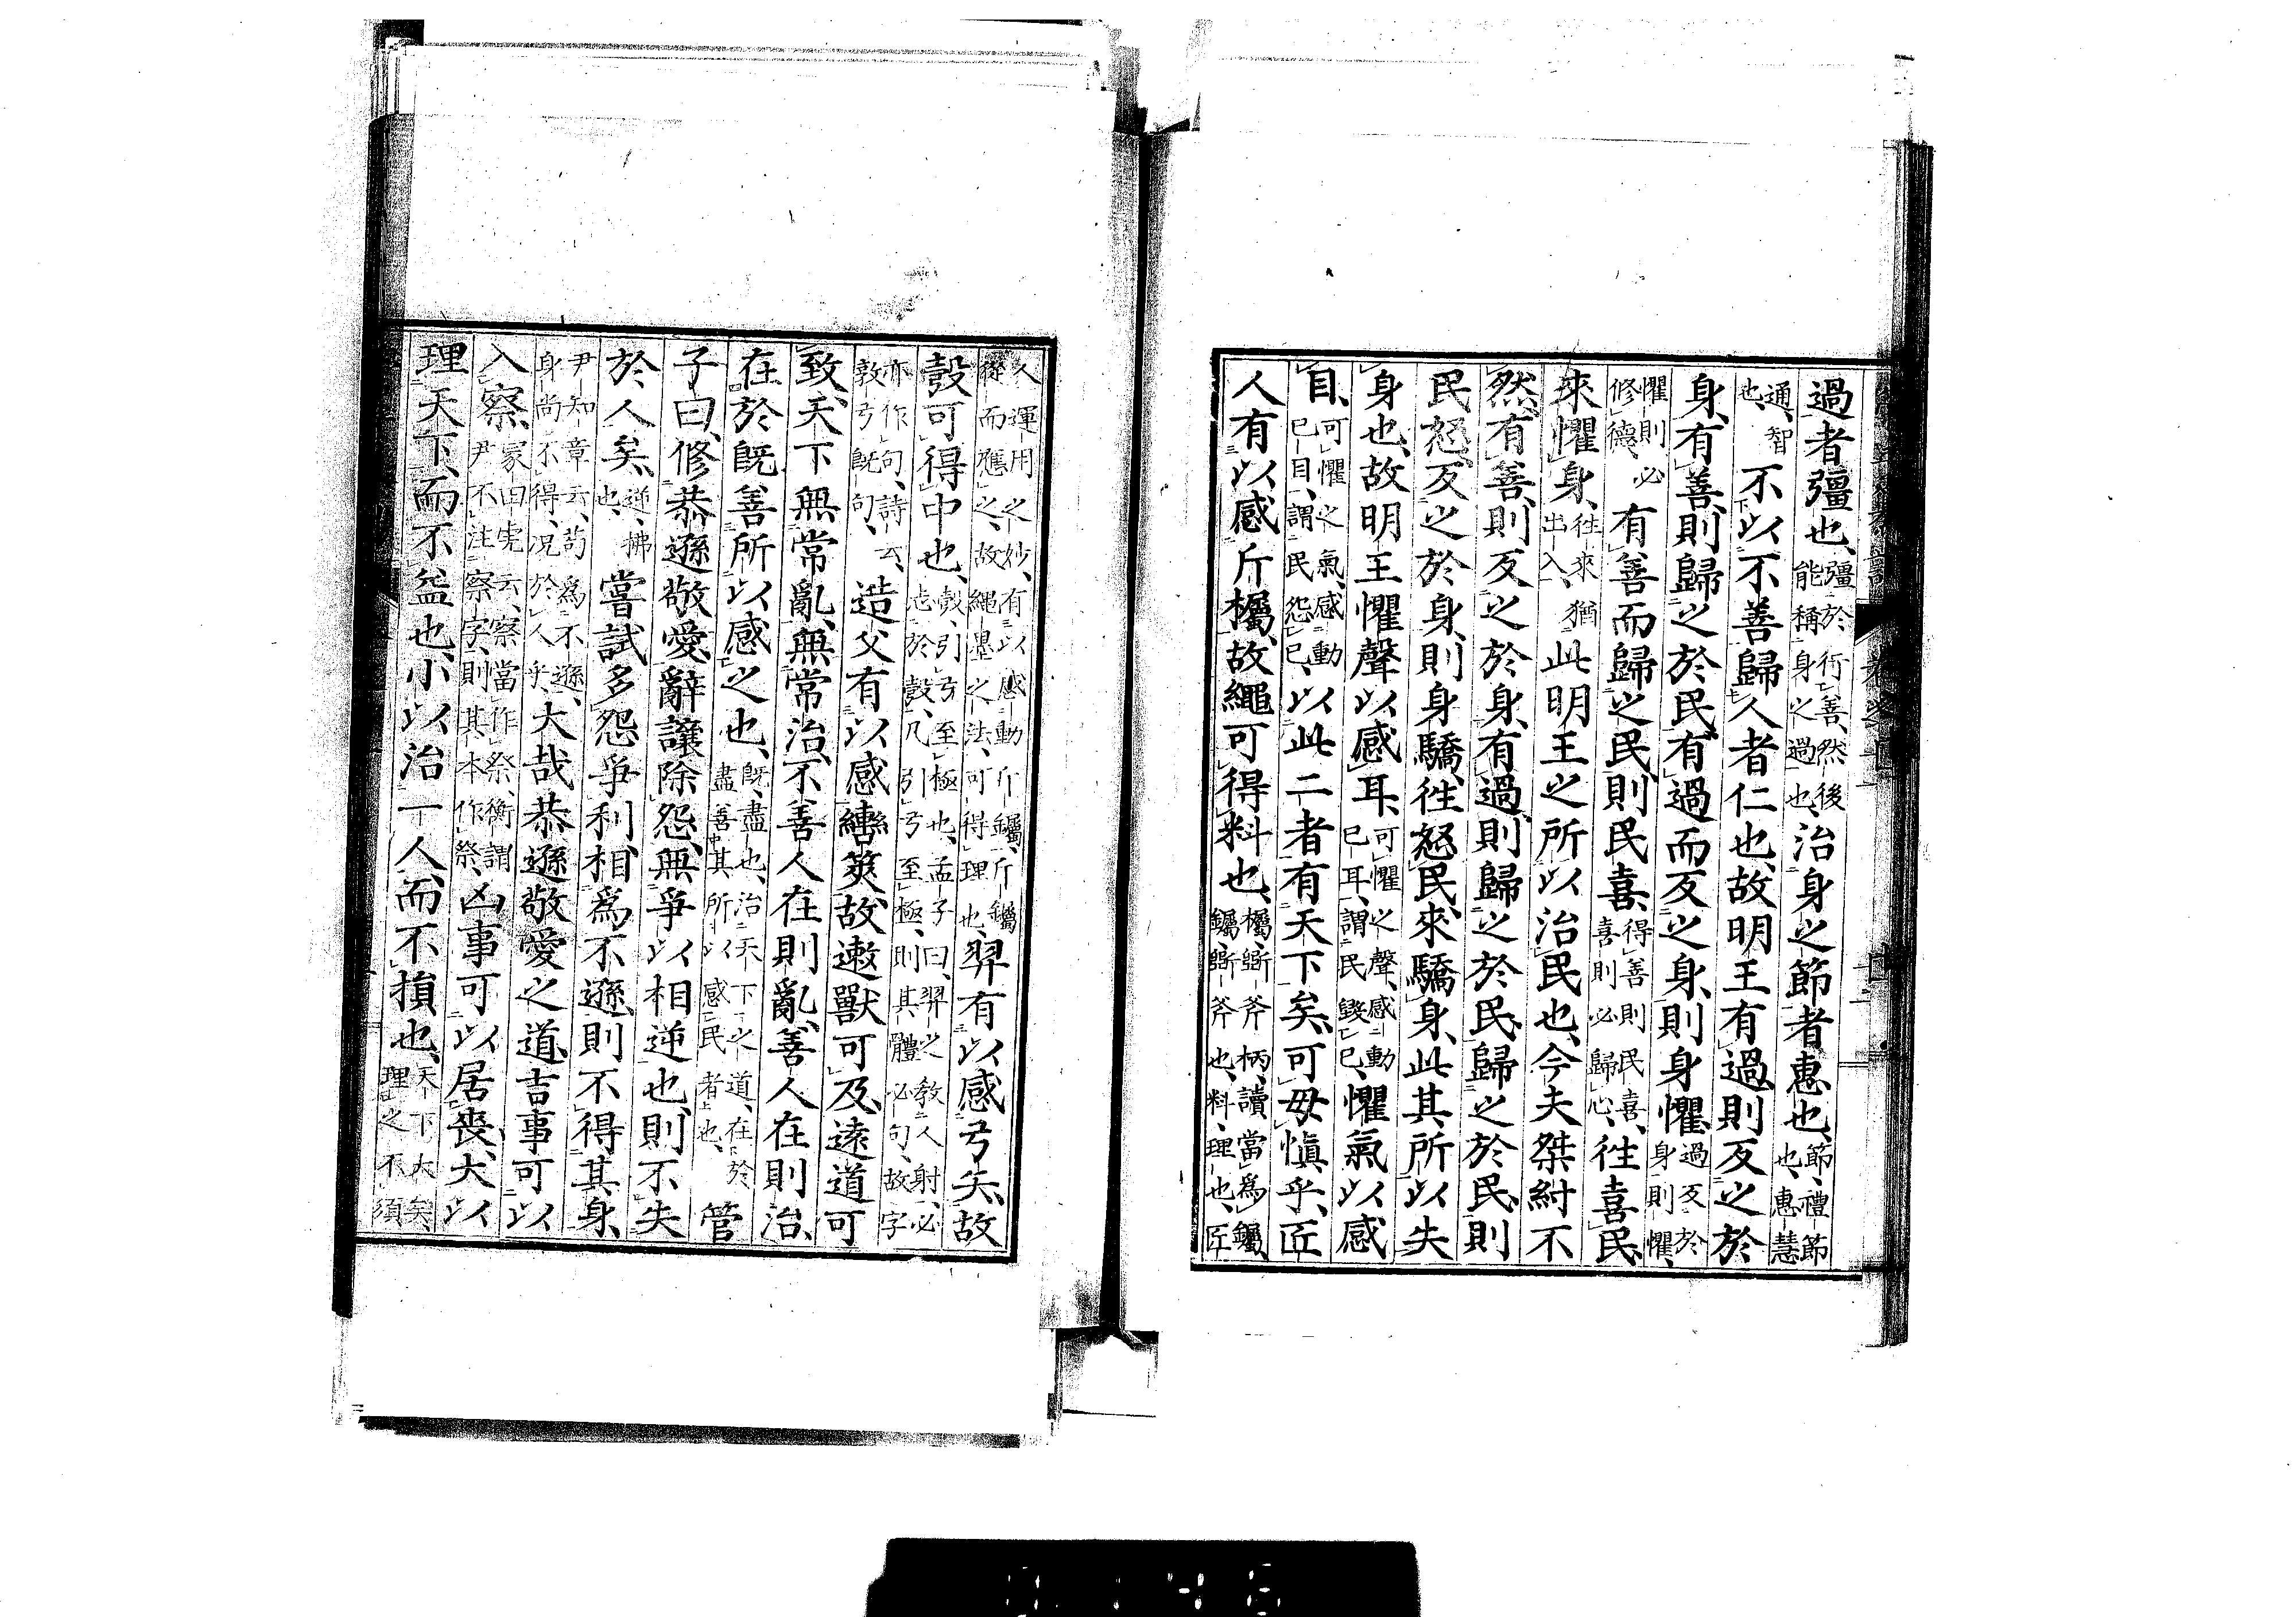 過者彊也、彊於行善、然後能稱身之過也、治身之節者惠也、節、禮節也、惠、慧
通、智也、不以不善歸人者仁也、故明王有過、則反之於
身、有善、則歸之於民、有過而反之身、則身懼、過反於身則懼、
懼則必修德、有善而歸之民、則民喜、得善則民喜、喜則必歸心、往喜民、
來懼身、往來、猶出入、此明王之所以治民也、今夫桀紂不
然、有善、則反之於身、有過、則歸之於民、歸之於民、則
民怒、反之於身、則身驕、往怒民、來驕身、此其所以失
身也、故明王懼聲以感耳、可懼之聲、感動已耳、謂民毀已、懼氣以感
目、可懼之氣、感動已目、謂民怨已、以此二者有天下矣、可毋愼乎、匠
人有以感斤欘、故繩可得料也、欘、斫斧柄、讀當爲钃、钃、斫斧也、料、理也、匠
人運用之妙、有以感動斤钃、斤钃從而應之、故繩墨之法、可得理也、羿有以感弓矢、故
彀可得中也、彀、引弓至極也、孟子曰、羿之敎人射、必志於彀、凡引弓至極、則其體必句、故字
亦作句、詩云、敦弓旣句、造父有以感轡筴、故遬獸可及、遠道可
致、天下無常亂、無常治、不善人在則亂、善人在則治、
在於旣善所以感之也、旣、盡也、治天下之道、在於盡善其所以感民者也、管
子曰、修恭遜敬愛、辭讓除怨、無爭以相逆也、則不失
於人矣、逆、拂也、嘗試多怨爭利、相爲不遜、則不得其身、
尹知章云、苟爲不遜、身尚不得、况於人乎、大哉恭遜敬愛之道、吉事可以
入察、冢田虎云、察當作祭、衡謂尹不注察字、則其本作祭、凶事可以居喪、大以
理天下、而不益也、小以治一人、而不損也、天下大矣、理之不須